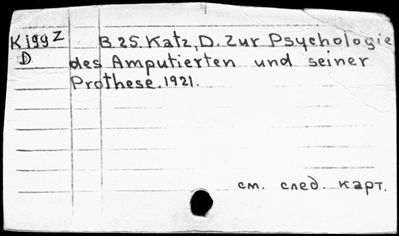 Kiggz B.25. Katz, D. Zur Psychologie
D des Amputierten und seiner
Prothese. 1921.
см. след. карт.